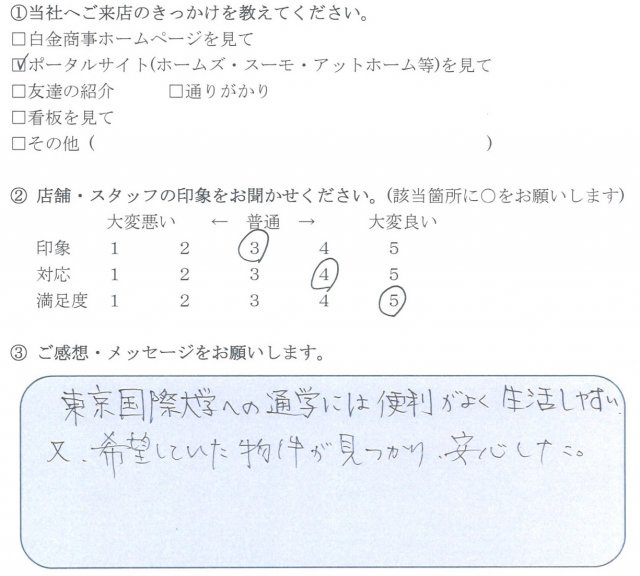 ①当社へご来店のきっかけを教えてください。
□白金商事ホームページを見て
☑ポータルサイト(ホームズ・スーモ・アットホーム等)を見て
□友達の紹介 □通りがかり
□看板を見て
□その他 ( )
② 店舗・スタッフの印象をお聞かせください。(該当箇所に○をお願いします)
大変悪い ← 普通 → 大変良い
印象 1 2 3 4 5
対応 1 2 3 4 5
満足度 1 2 3 4 5
③ ご感想・メッセージをお願いします。
東京国際大学への通学には便利がよく生活しやすい、
又、希望していた物件が見つかり、安心した。